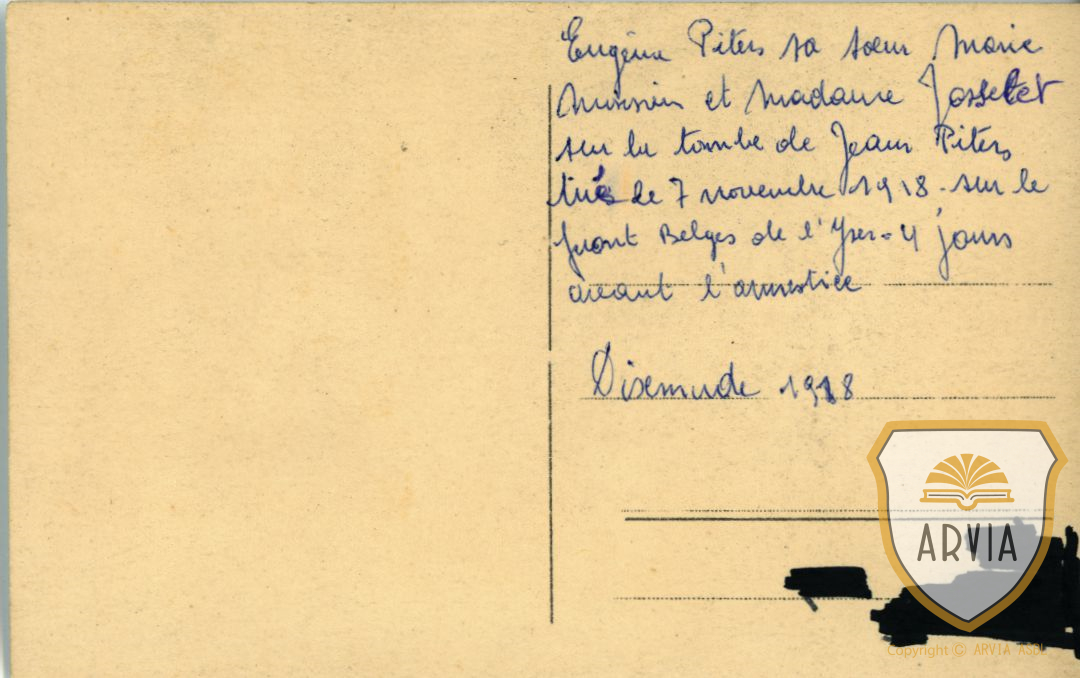 Eugène Piters sa soeur Marie
et Madame Josselet
sur la tombe de Jean Piters
tués le 7 novembre 1918 - sur le
front Belges de l'Yser - 4 jours
avant l'armistice
Dixemude 1918
ARVIA
Copyright © ARVIA ASBL